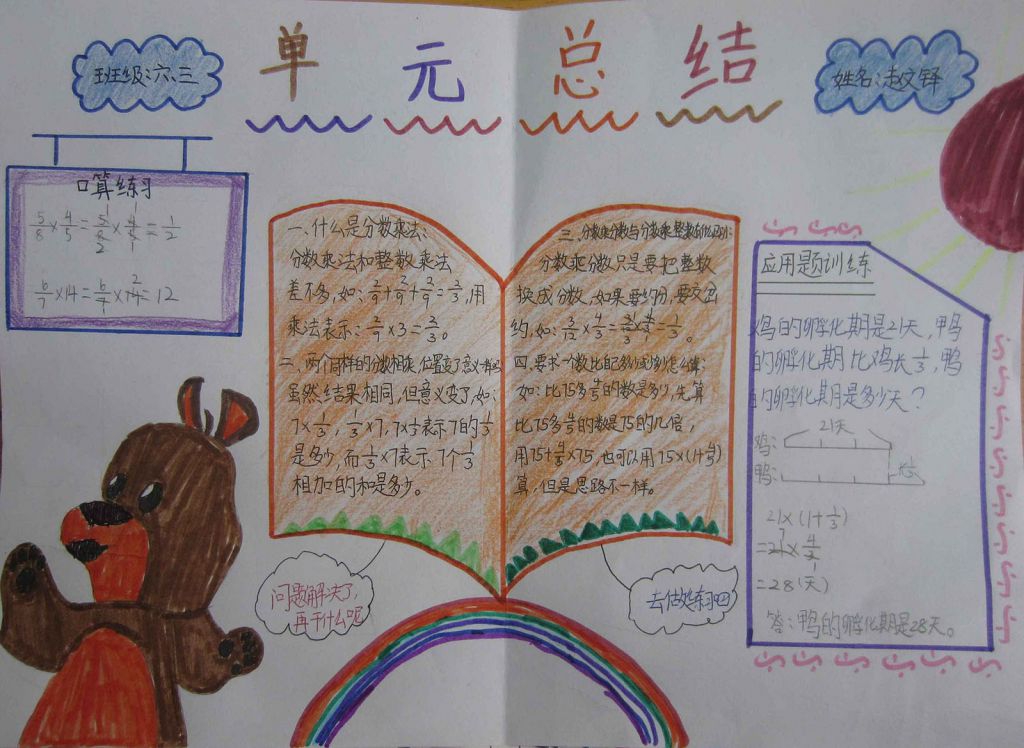 单元总结
班级:六、三
姓名:赵文铎
口算练习
5/8×4/5=5/8×4/5=1/2
6/7×14=6/7×14=12
一、什么是分数乘法:
分数乘法和整数乘法
差不多,如:2/9+2/9+2/9=2/3,用
乘法表示:2/9×3=2/3。
二、两个同样的分数相乘,位置变了意义
虽然结果相同,但意义变了,如:
7×1/3,1/3×7,7×1/3表示7的1/3
是多少,而1/3×7表示7个1/3
相加的和是多少。
三、分数乘分数与分数乘整数的
分数乘分数只是要把整数
换成分数,如果要约分,要交叉
约,如:
四、要求一个数比已多
如:比75多 的数是多少,先算
比75多 的数是75的几倍,
用75+ ×75,也可以用75×(1+ )
算,但是思路不一样。
问题解决了,
再干什么呢
去做练习四
应用题训练
鸡的孵化期是21天,鸭
的孵化期比鸡长1/3,鸭
的孵化期是多少天?
21天
鸡:
鸭:
长1/3
21×(1+1/3)
=21×4/3
=28(天)
答:鸭的孵化期是28天。